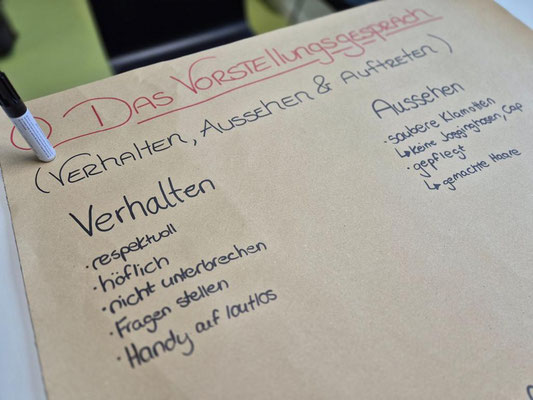 Das Vorstellungsgespräch
(Verhalten, Aussehen & Auftreten)
Verhalten
· respektvoll
· höflich
· nicht unterbrechen
· Fragen stellen
· Handy auf lautlos
Aussehen
· saubere Klamotten
↳ keine Jogginghosen, Cap
· gepflegt
↳ gemachte Haare